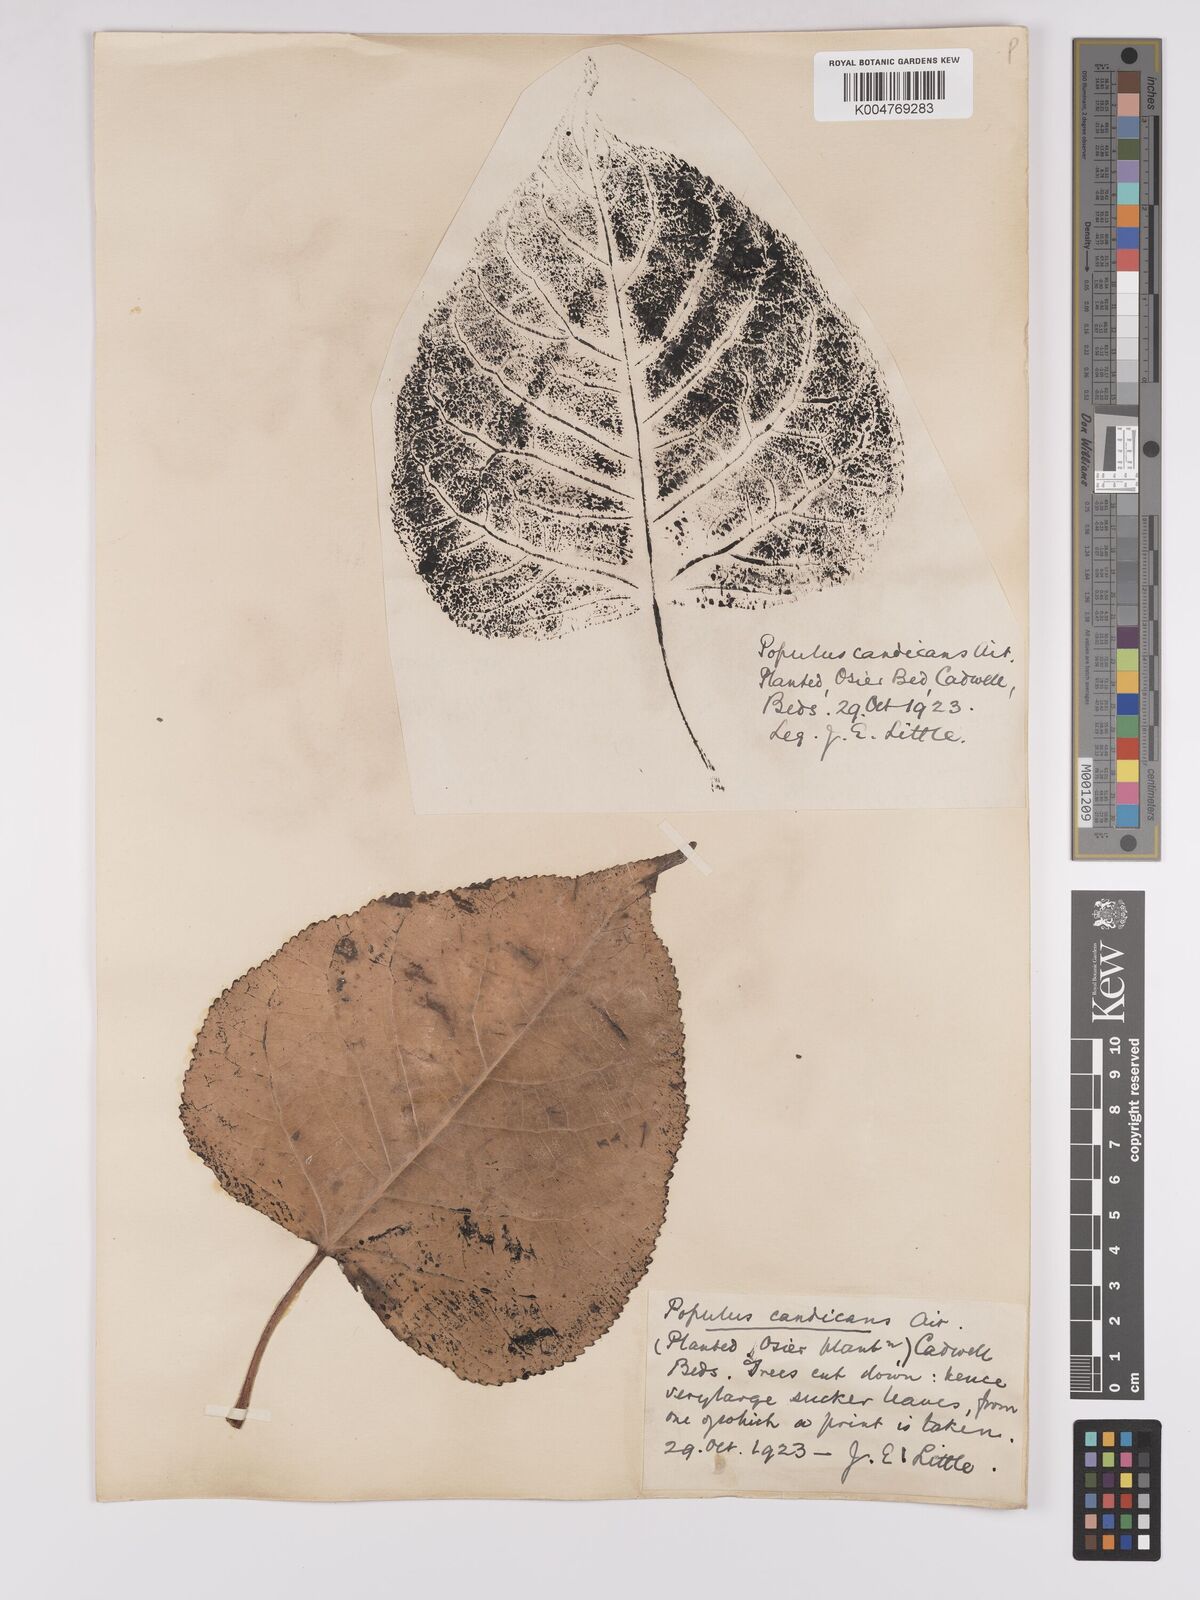 P
ROYAL BOTANIC GARDENS KEW
K004769283
Populus candicans Ait.
Planted, Osier Bed, Cadwell,
Beds. 29. Oct 1923.
Leg. J. E. Little.
Populus candicans Air.
(Planted, Osier plantn) Cadwell
Beds. Trees cut down: hence
very large sucker leaves, from
one of which a print is taken.
29. Oct. 1923 — J. E. Little.
inches
Density
Don Williams
centimeters
M001209
Royal Botanic Gardens
Kew
0 1 2 3 4 5 6 7 8 9 10
cm
copyright reserved